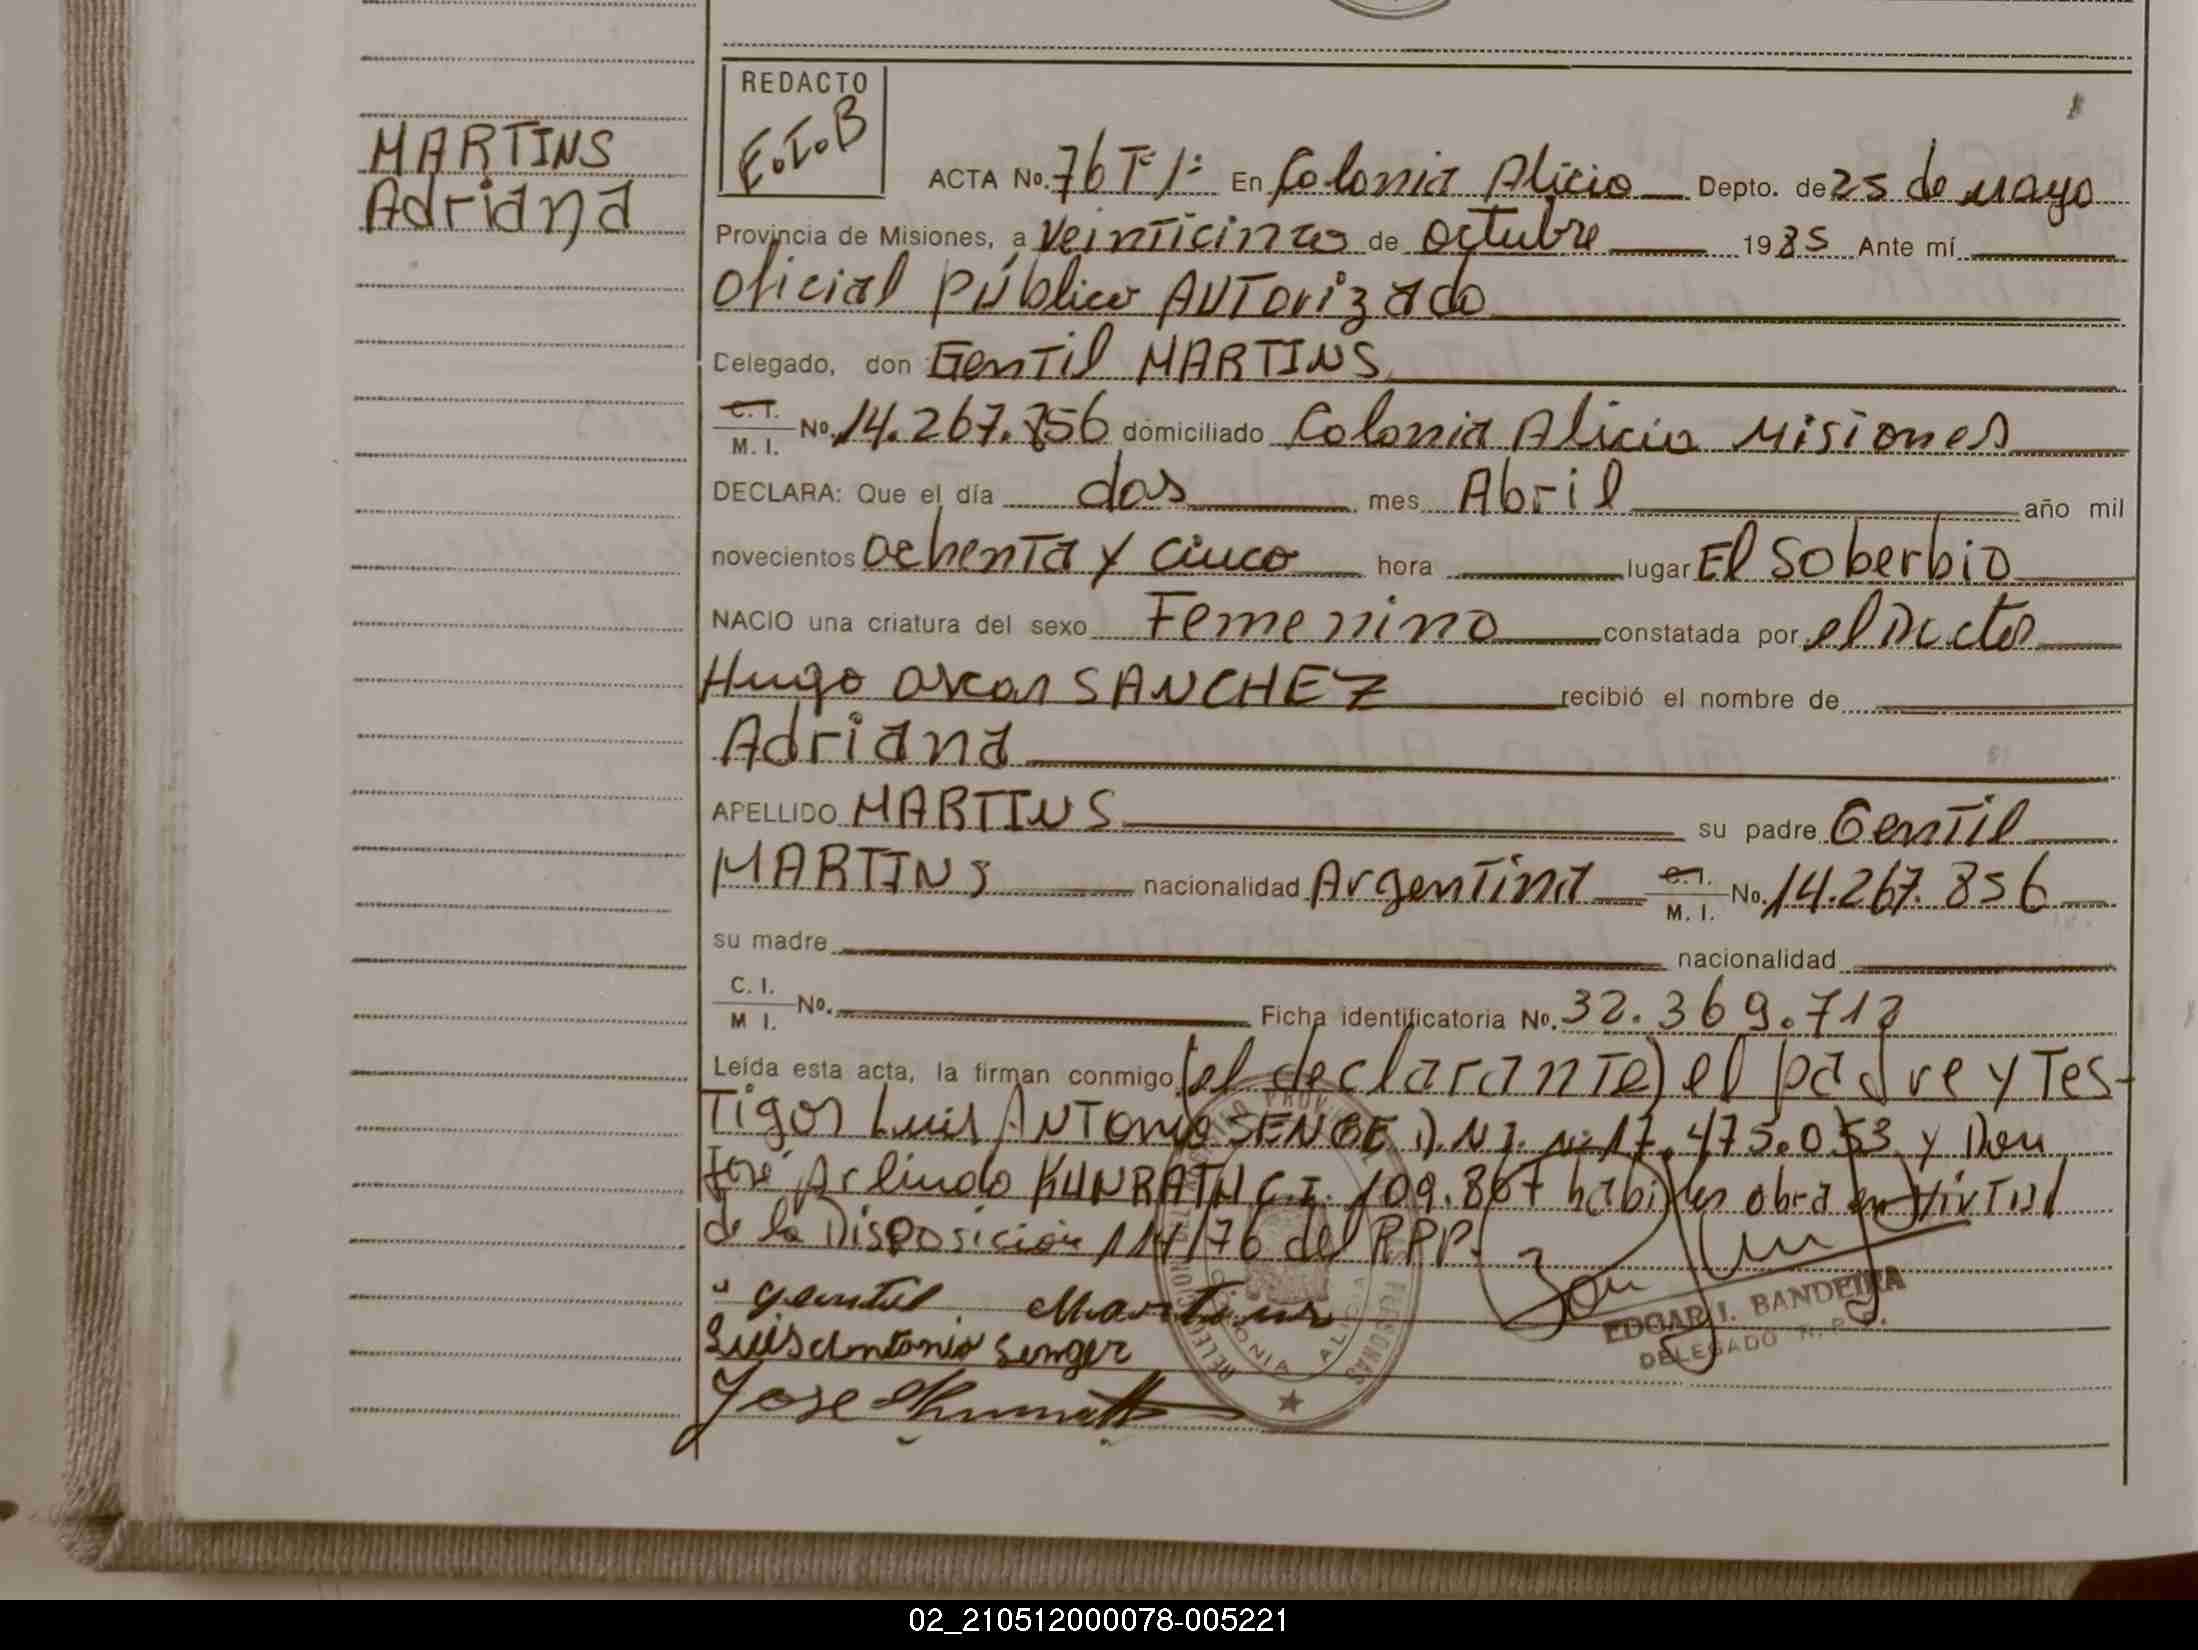 MARTINS
Adriana
REDACTO
E.I.B
ACTA No. 76 Tº 1º En Colonia Alicia Depto. de 25 de Mayo
Provincia de Misiones, a Veinticinco de octubre 1985 Ante mí
Oficial Público Autorizado
Celegado, don Gentil MARTINS
C. I. M. I. No. 14.267.856 domiciliado Colonia Alicia Misiones
DECLARA: Que el día dos mes Abril año mil
novecientos ochenta y cinco hora lugar El Soberbio
NACIO una criatura del sexo Femenino constatada por el Doctor
Hugo Oscar SANCHEZ recibió el nombre de
Adriana
APELLIDO MARTINS su padre Gentil
MARTINS nacionalidad Argentina C. I. M. I. No. 14.267.856
su madre nacionalidad
C. I. M I. No. Ficha identificatoria No. 32.369.712
Leída esta acta, la firman conmigo (el declarante) el padre y Tes-
Tigos Luis Antonio D.N.I. Nº 17.475.053 y Don
José Arlindo KUNRATH C.I. 109.867 habiles obra en virtud
de la Disposición 114/76 del RPP.
gentil Martins
Luis antonio Senger
Jose
EDGAR I. BANDEIRA
DELEGADO R. P. P.
COLONIA ALICIA
02_210512000078-005221